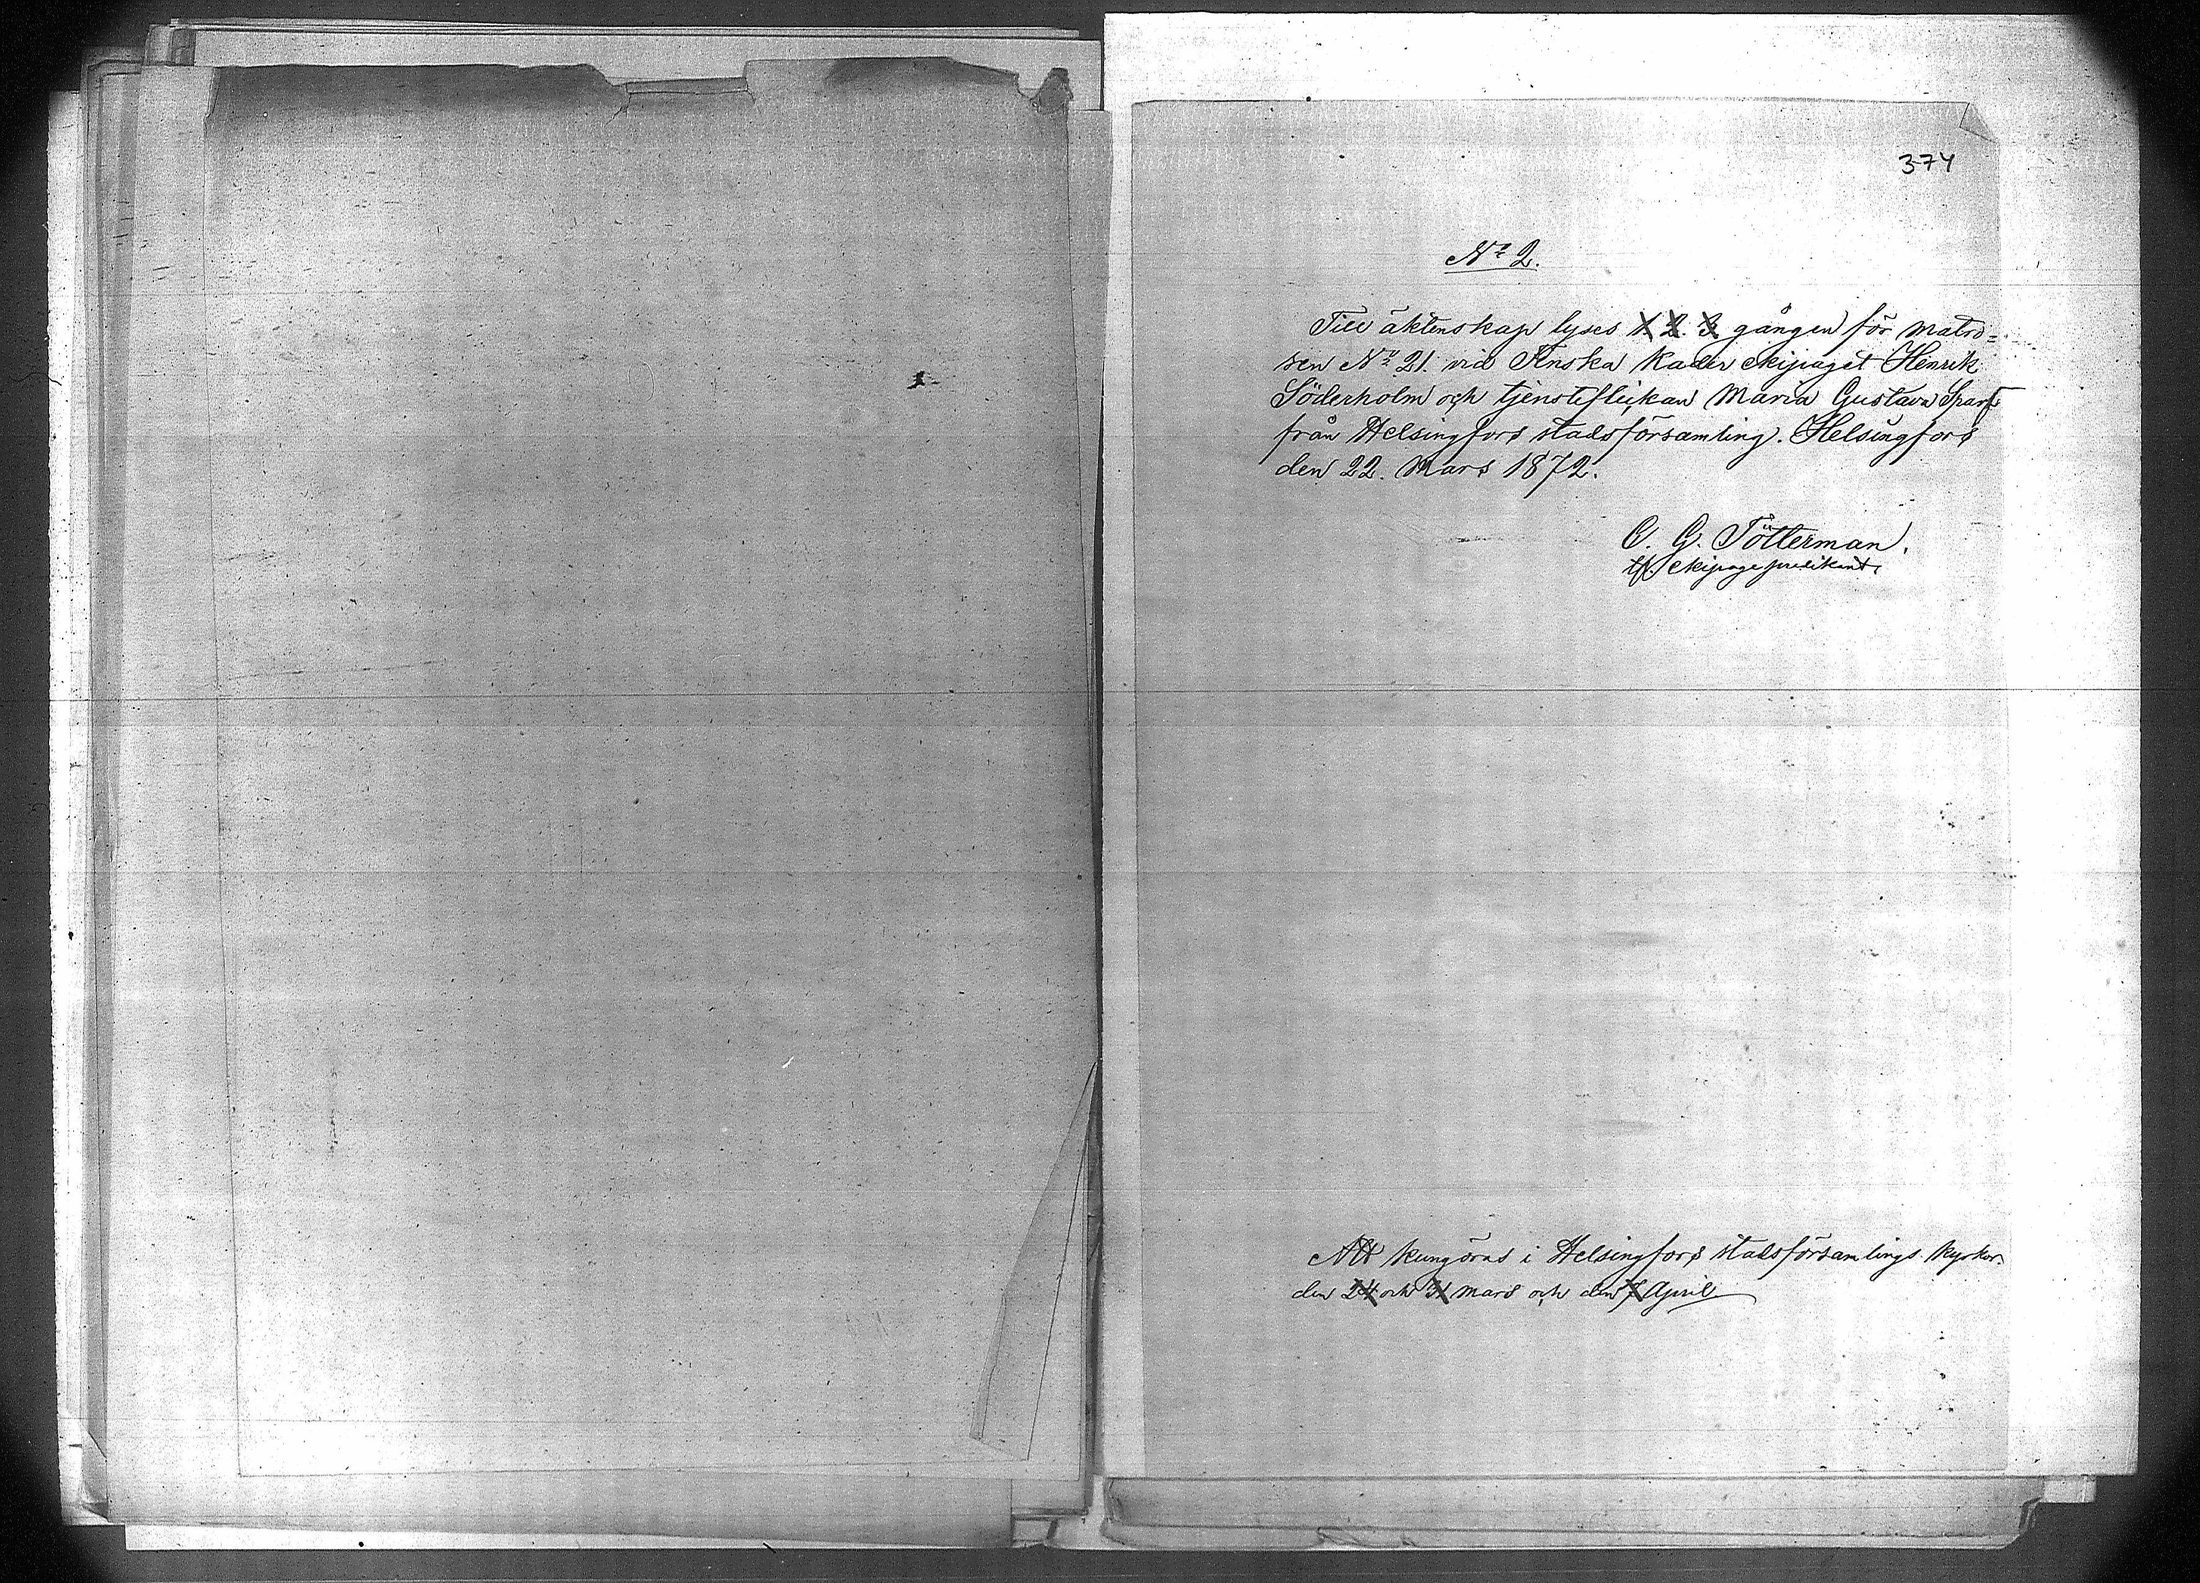 374
No 2.
Till äktenskap lyses 1. 2. 3 gången för Matro=
sen No 21. vid Finska Kader ekipaget Henrik
Söderholm och tjensteflickan Maria Gustava
från Helsingfors stadsförsamling. Helsingfors
den 22. Mars 1872.
C. G. Tötterman.
tf. ekipagepredikant.
Att kungöras i Helsingfors stadsförsamlings kyrkor.
den 24 och 31 Mars och den 7 April